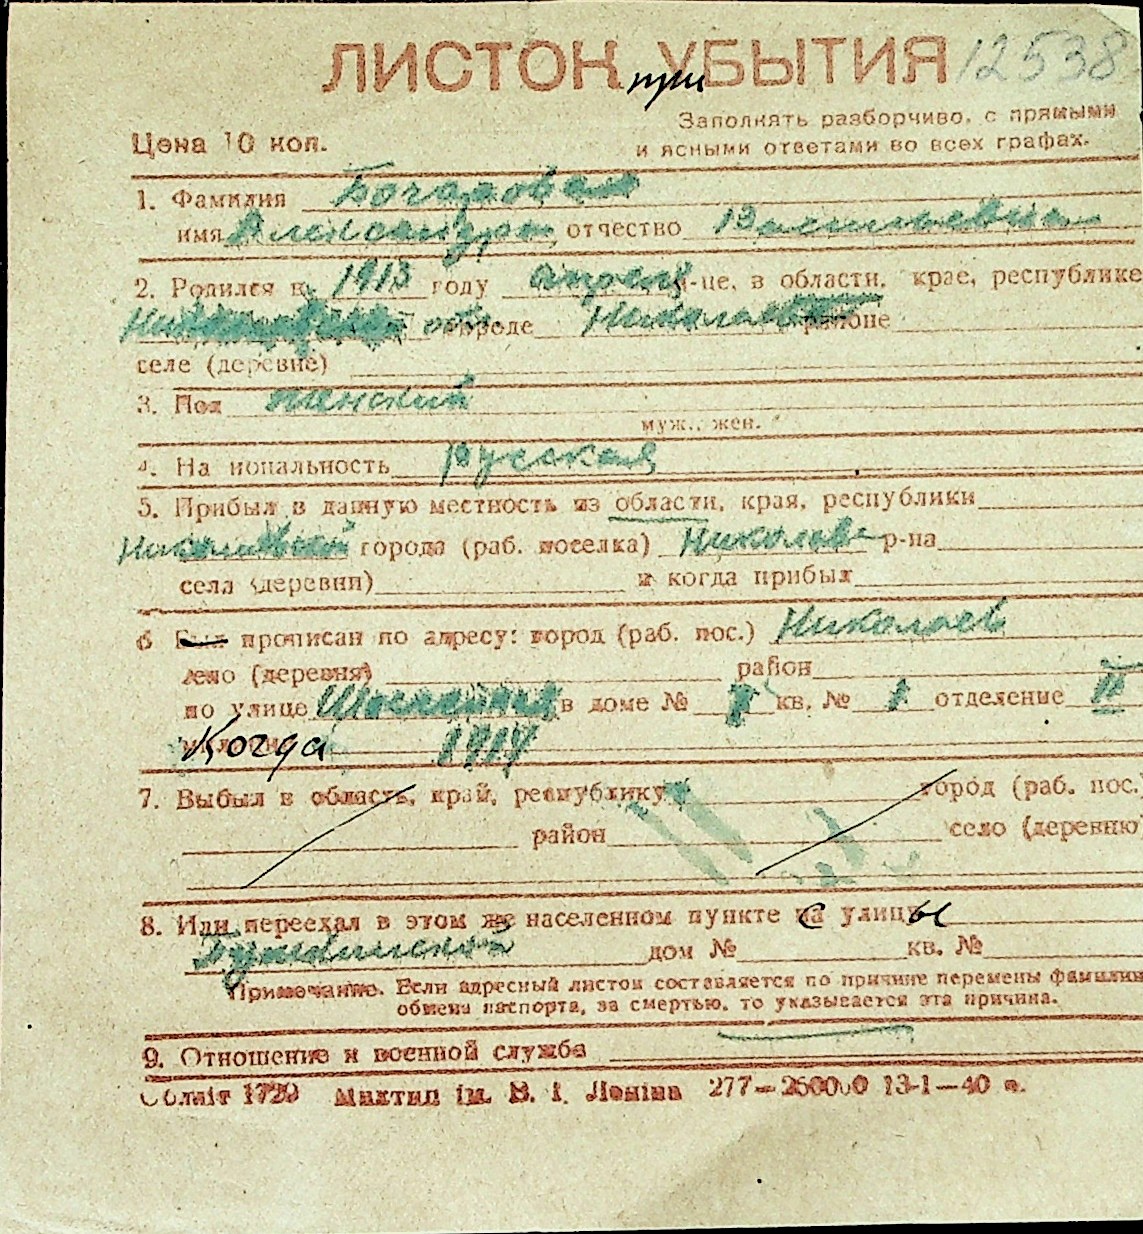 ЛИСТОК при УБЫТИЯ 12538
Заполнять разборчиво, с прямыми
Цена 10 коп.
и ясными ответами во всех графах.
1. Фамилия
имя Александра отчество Васильевна
2. Родился в 1913 году апреля м-це, в области, крае, республике
городе Николаев районе
селе (деревне)
3. Пол женский
муж., жен.
4. Национальность русская
5. Прибыл в данную местность из области, края, республики
Николаевской города (раб. поселка) Николаев р-на
села (деревни) и когда прибыл
6 Был прописан по адресу: город (раб. пос.) Николаев
село (деревня) район
по улице в доме № 7 кв. № 1 отделение II
Когда
7. Выбыл в область, край, республику город (раб. пос.
район село (деревню)
8. Или переехал в этом же населенном пункте с улицы
дом № кв. №
Примечание. Если адресный листок составляется по причине перемены фамилии
обмена паспорта, за смертью, то указывается эта причина.
9. Отношение к военной службе
Обліт 1729 Миктип ім. В. І. Леніна 277—260000 13-1—40 р.